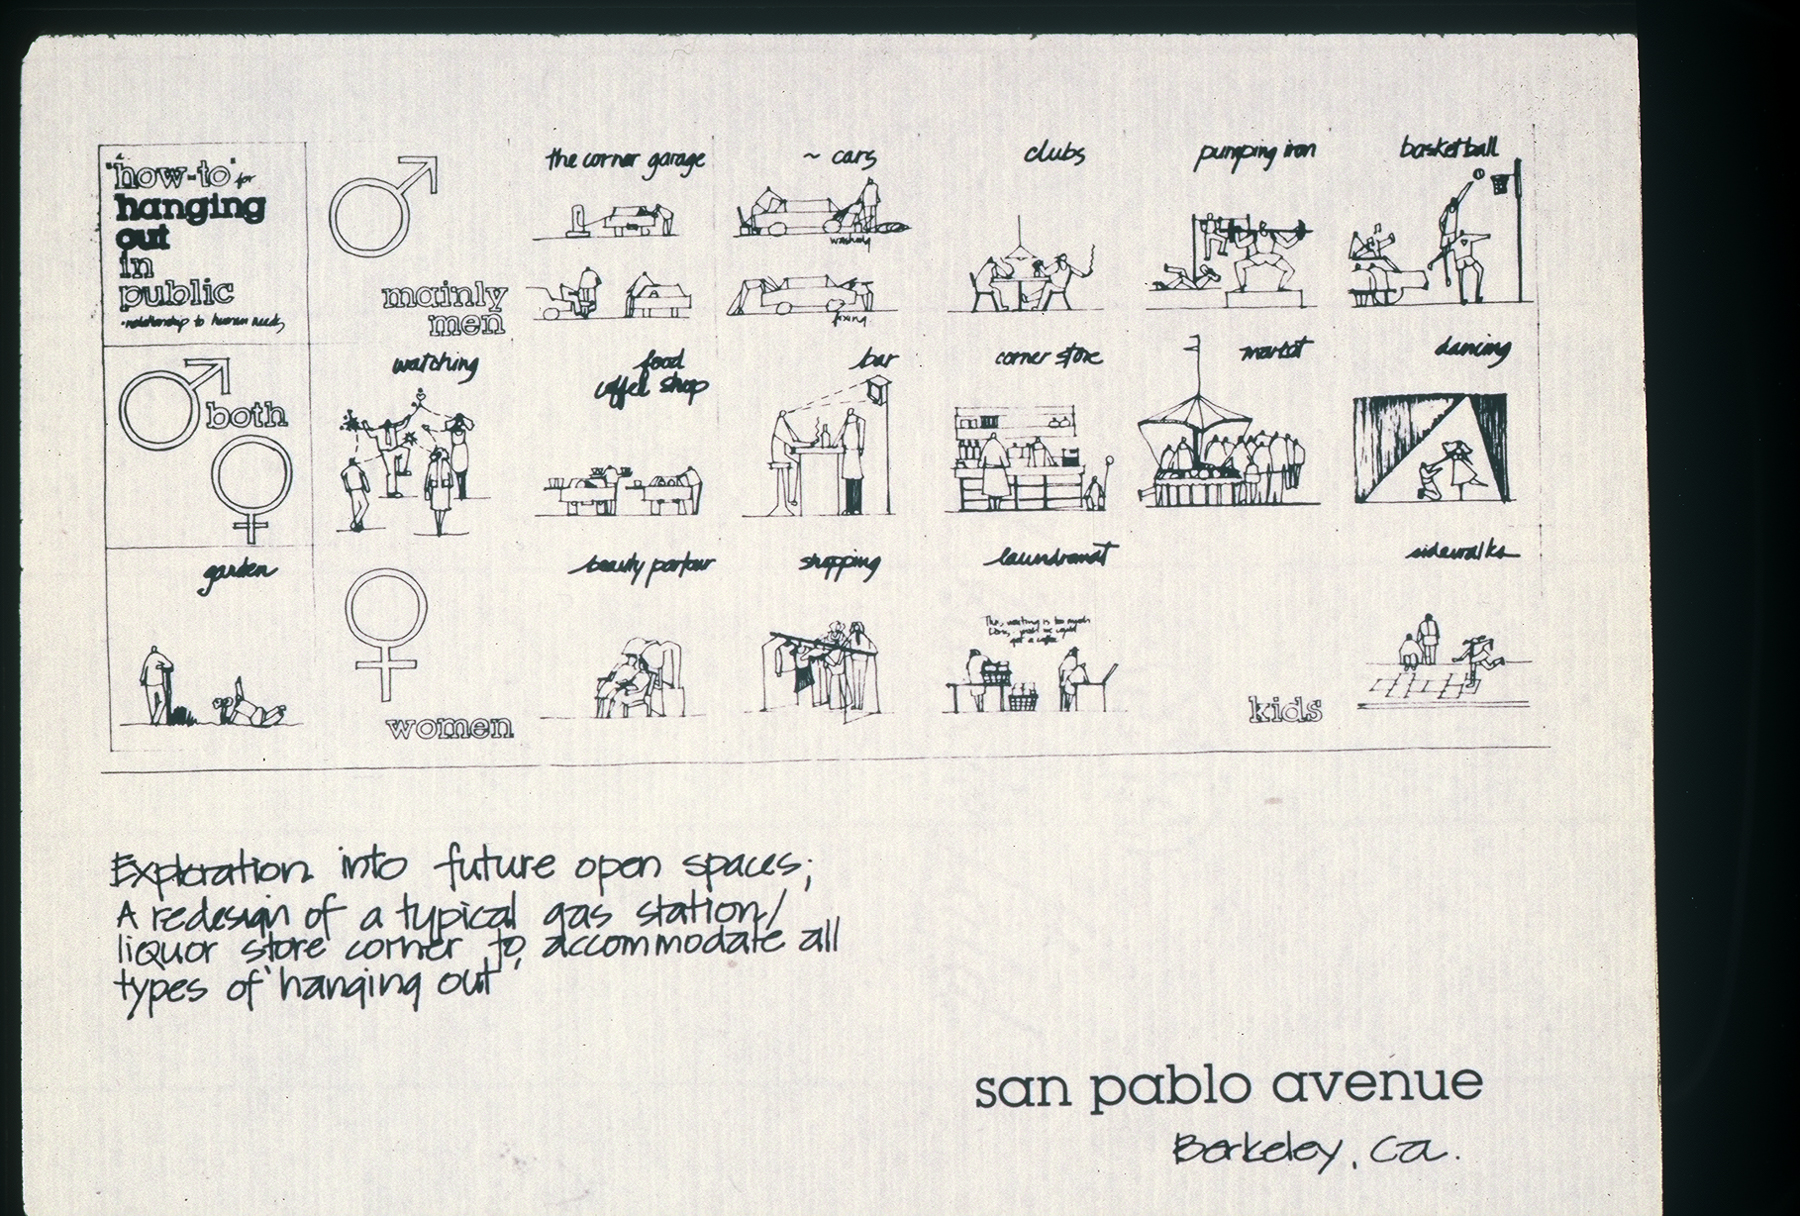 a
"how-to" for
hanging
out
in
public
·relationship to human needs
mainly
men
the corner garage
~ cars
washing
fixing
clubs
pumping iron
basketball
both
watching
food
coffee shop
bar
corner store
market
dancing
garden
women
beauty parlour
shopping
laundromat
This waiting is too much
wish we could
get a coffee
kids
sidewalks
Exploration into future open spaces;
A redesign of a typical gas station/
liquor store corner to accommodate all
types of 'hanging out'
san pablo avenue
Berkeley, Ca.